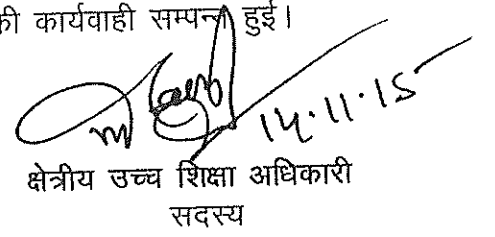 की कार्यवाही सम्पन्न हुई।
14.11.15
क्षेत्रीय उच्च शिक्षा अधिकारी
सदस्य